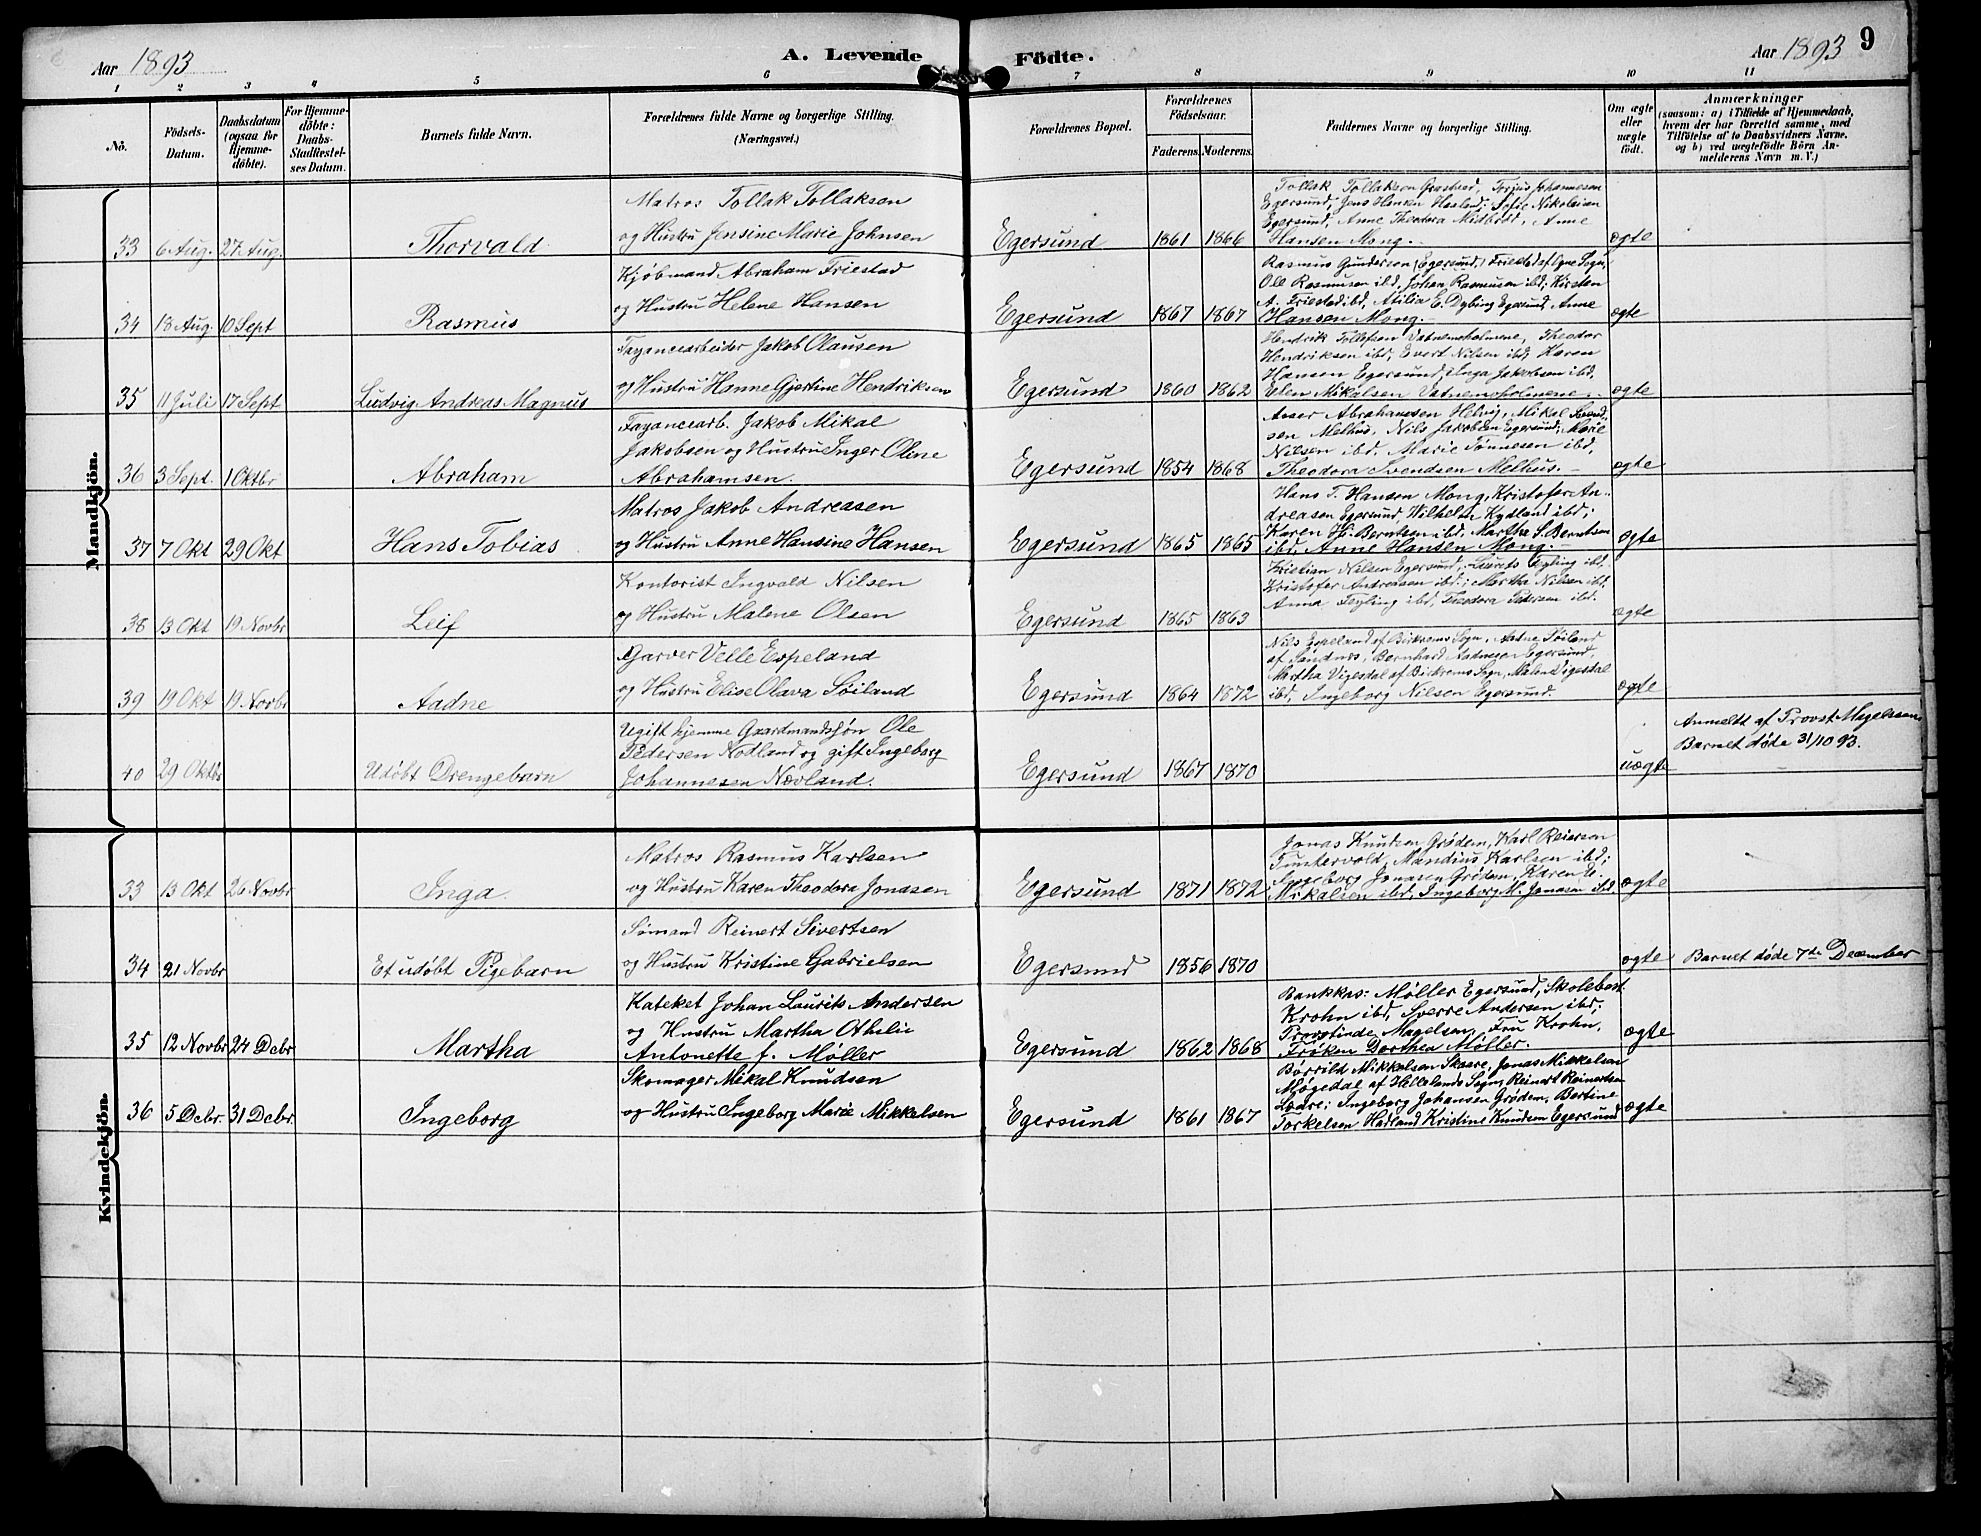 Aar 1893
A. Levende
Födte.
Aar 1893
9
1 2 3 4 5 6 7 8 9 10 11
No.
Födsels-
Datum.
Daabsdatum
(ogsaa for
Hjemme-
döbte).
For Hjemme-
döbte:
Daabs-
Stadfæstel-
ses Datum.
Barnets fulde Navn.
Forældrenes fulde Navne og borgerlige Stilling.
(Næringsvei.)
Forældrenes Bopæl.
Forældrenes
Födselsaar.
Faderens. Moderens.
Faddernes Navne og borgerlige Stilling.
Om ægte
eller
uægte
födt.
Anmærkninger
(saasom: a) i Tilfælde af Hjemmedaab,
hvem der har forrettet samme, med
Tilföielse af to Daabsvidners Navne,
og b) ved uægtefödte Börn An-
melderens Navn m. V.)
Mandkjön.
33 6 Aug. 27 Aug. Thorvald
Matros Tollak Tollaksen
og Hustru Jensine Marie Johnsen
Egersund 1861 1866
Tollak Tollaksen Grastveed, Torjus Johannesen
Egersund, Jens Hansen Havland; Sofie Nikolaisen
Egersund, Anne Theodora Midbrød, Anne
Hansen Mong.
ægte
34 18 Aug. 10 Sept Rasmus
Kjøbmand Abraham Friestad
og Hustru Helene Hansen
Egersund 1867 1867
Rasmus Gunderson (Egersund,) Friestad af Ogne Sogn,
Ole Rasmusen ibd, Johan Rasmusen ibd; Kirsten
A. Friestad ibd, Atilia E. Dybing Egersund, Anne
Hansen Mong.
ægte
35 11 Juli 17 Sept Ludvig Andreas Magnus
Fayancearbeider Jakob Olausen
og Hustru Hanne Gjertine Hendriksen
Egersund 1860 1862
Hendrik Tollefsen Vatnemsholmene, Theodor
Hendriksen ibd, Evert Nilsen ibd, Karen
Hansen Egersund, Inga Jakobsen ibd,
Elen Mikalsen Vatnemsholmene.
ægte
36 3 Sept. 1 Oktbr Abraham
Fayancearb. Jakob Mikal
Jakobsen og Hustru Inger Oline
Abrahamsen.
Egersund 1854 1868
Asser Abrahamsen Helvig, Mikal Svend-
sen Melhus, Nils Jakobsen Egersund; Marie
Nilsen ibd, Marie Tønnesen ibd,
Theodora Svendsen Melhus.
ægte
37 7 Okt 29 Okt Hans Tobias
Matros Jakob Andreasen
og Hustru Anne Hansine Hansen
Egersund 1865 1865
Hans T. Hansen Mong, Kristofer An-
dreasen Egersund, Wilhelm Kydland ibd;
Karen Berntsen ibd, Marthe S. Berntsen
ibd, Anne Hansen Mong.
ægte
38 13 Okt 19 Novbr Leif
Kontorist Ingvald Nilsen
og Hustru Malene Olsen
Egersund 1865 1863
Kristian Nilsen Egersund, Laurits Feyling ibd,
Kristofer Andreasen ibd; Martha Nilsen ibd,
Anna Feyling ibd, Theodora Pedersen ibd.
ægte
39 19 Okt 19 Novbr Aadne
Garver Velle Espeland
og Hustru Elise Olava Søiland
Egersund 1864 1872
Nils Espeland af Birkrems Sogn, Aadne Søiland
af Sandnes, Bernhard Aadnesen Egersund,
Martha Vigesdal af Birkrems Sogn, Malene Vigesdal
ibd, Ingeborg Nilsen Egersund.
ægte
40 29 Oktbr Udøbt Drengebarn
Ugift hjemme Gaardmandssøn Ole
Pedersen Nodland og gift Ingeborg
Johannesen Nævland.
Egersund 1867 1870
uægte
Anmeldt af Provst Magelssen.
Barnet døde 31/10 93.
Kvindekjön.
33 13 Okt 26 Novbr Inga.
Matros Rasmus Karlsen
og Hustru Karen Theodora Jonasen
Egersund 1871 1872
Jonas Knudsen Grødem, Karl Reiersen
Tuntervold, Mandius Karlsen ibd;
Ingeborg Jonasen Grødem, Karen
Mikalsen ibd, Ingeborg M. Jonasen ibd
ægte
34 21 Novbr Et udøbt Pigebarn
Sømand Reinert Sivertsen
og Hustru Kristine Gabrielsen
Egersund 1856 1870
ægte
Barnet døde 7de December
35 12 Novbr 24 Decbr Martha
Kateket Johan Laurits Andersen
og Hustru Martha Othelie
Antonette f. Møller
Egersund 1862 1868
Bankkas: Møller Egersund, Skolebest
Krohn ibd, Sverre Andersen ibd;
Provstinde Magelsen, Fru Krohn,
Frøken Dorthea Møller.
ægte
36 5 Decbr. 31 Decbr. Ingeborg
Skomager Mikal Knudsen
og Hustru Ingeborg Marie Mikkelsen
Egersund 1861 1867
Børrild Mikkelsen Skaare, Jonas Mikkelsen
Møgedal af Hellelands Sogn, Reinert Reinertsen
Ingeborg Johansen Grødem, Bertine
Torkelsen Hadland Kristine Knudsen Egersund
ægte